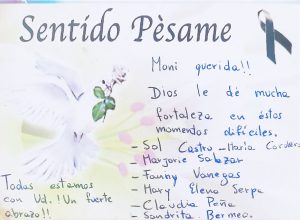 Sentido Pèsame
Moni querida!!
Dios le dé mucha
fortaleza en éstos
momentos difíciles.
- Sol Castro - Maria Cordero
- Marjorie Salazar
- Fanny Vanegas
- Mary Elena Serpa
- Claudia Peña
- Sandrita Bermeo.
Todas estamos
con Ud. ! Un fuerte
abrazo!!